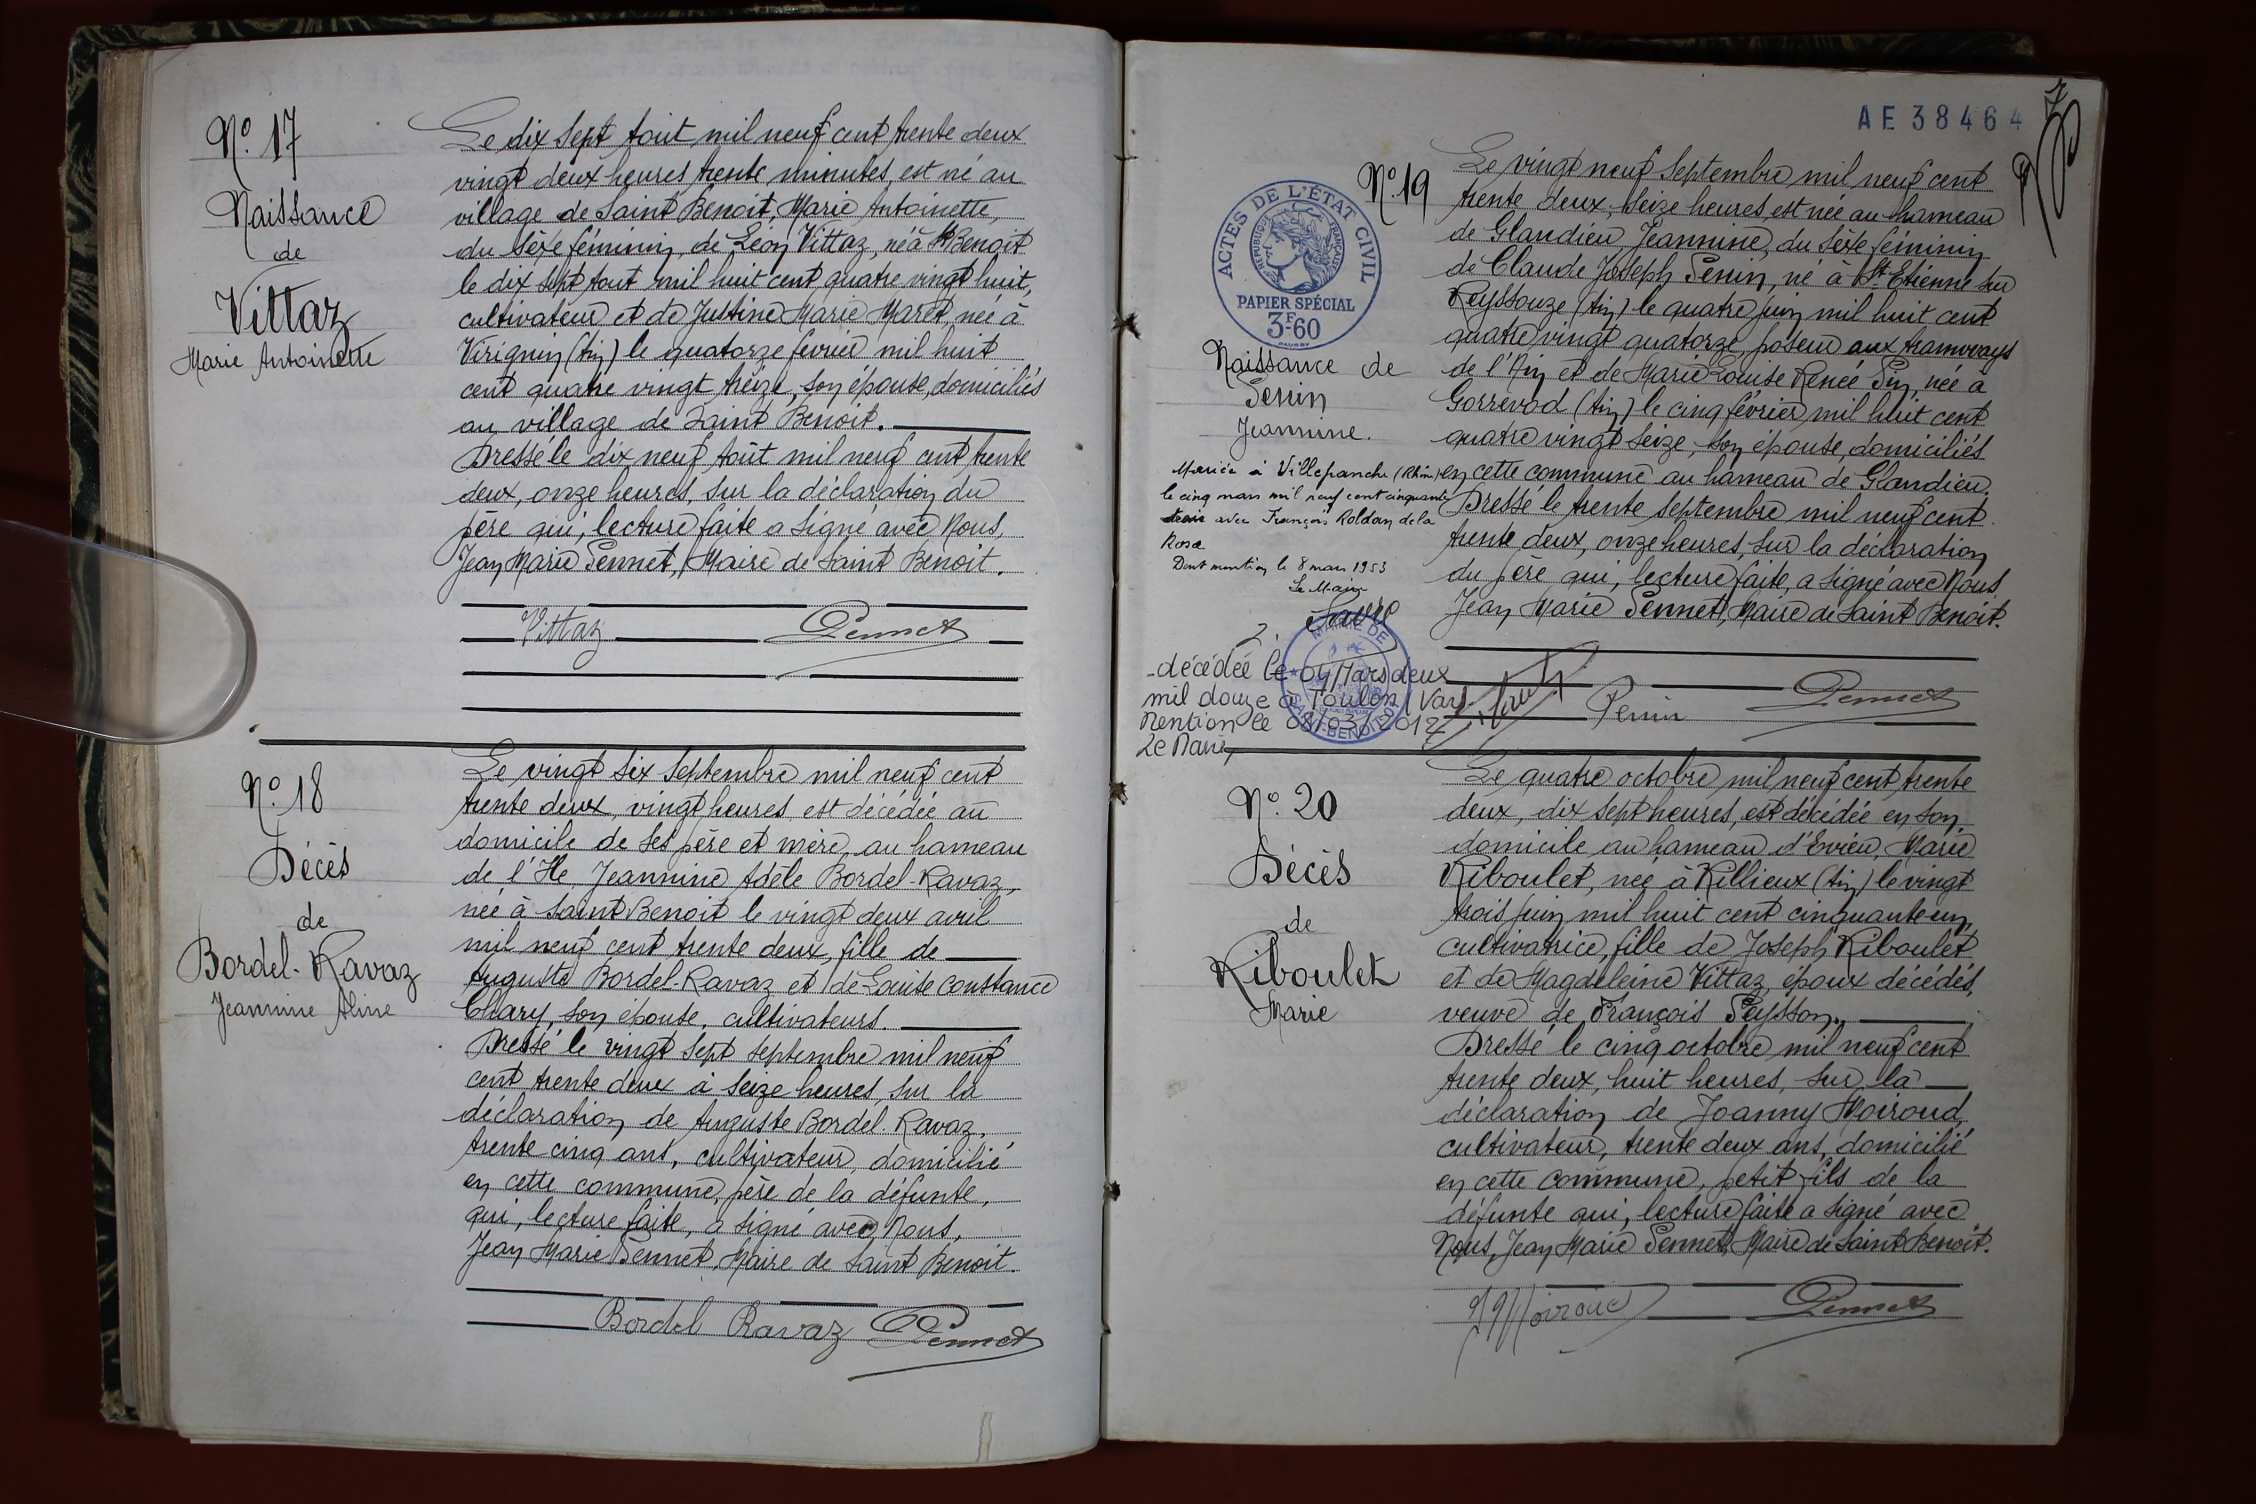 N° 17
Naissance
de
Vittaz
Marie Antoinette
Le dix sept Août mil neuf cent trente deux
vingt deux heures trente minutes, est né au
village de Saint Benoit, Marie Antoinette,
du sexe féminin, de Léon Vittaz, né à St Benoit
le dix sept Août mil huit cent quatre vingt huit,
cultivateur et de Justine Marie Maret, née à
Virignin (Ain) le quatorze février mil huit
cent quatre vingt treize, son épouse, domiciliés
au village de Saint Benoit.
Dressé le dix neuf Août mil neuf cent trente
deux, onze heures, sur la déclaration du
père qui, lecture faite a signé avec Nous,
Jean Marie Pennet, Maire de Saint Benoit.
Vittaz Pennet
N° 18
Décès
de
Bordel-Ravaz
Jeannine Aline
Le vingt six Septembre mil neuf cent
trente deux, vingt heures est décédée au
domicile de ses père et mère, au hameau
de l'Ile, Jeannine Adèle Bordel-Ravaz,
née à Saint Benoit le vingt deux avril
mil neuf cent trente deux, fille de
Auguste Bordel-Ravaz et de Louise Constance
Chary, son épouse, cultivateurs.
Dressé le vingt sept septembre mil neuf
cent trente deux à seize heures, sur la
déclaration de Auguste Bordel-Ravaz,
trente cinq ans, cultivateur, domicilié
en cette commune, père de la défunte,
qui, lecture faite, a signé avec Nous,
Jean Marie Pennet, Maire de Saint Benoit.
Bordel Ravaz Pennet
AE 38464
7
N° 19
ACTES DE L'ÉTAT CIVIL
RÉPUBLIQUE FRANÇAISE
PAPIER SPÉCIAL
3F60
Naissance de
Penin
Jeannine.
Mariée à Villefranche (Rhône)
le cinq mars mil neuf cent cinquante
trois avec François Roldan de la
Rosa
Dont mention le 8 mars 1953
Le Maire
2.
MAIRIE DE
SAINT-BENOIT
décédée le 04 Mars deux
mil douze à Toulon (Var)
Mention le 08/03/2012
Le Maire,
Le vingt neuf Septembre mil neuf cent
trente deux, seize heures, est née au hameau
de Glandieu, Jeannine, du sexe féminin
de Claude Joseph Penin, né à St Etienne sur
Reyssouze (Ain) le quatre Juin mil huit cent
quatre vingt quatorze, poseur aux tramways
de l'Ain et de Marie Louise Renée Pin, née à
Gorrevod (Ain) le cinq février mil huit cent
quatre vingt seize, son épouse, domiciliés
en cette commune au hameau de Glandieu.
Dressé le trente septembre mil neuf cent
trente deux, onze heures, sur la déclaration
du père qui, lecture faite, a signé avec Nous,
Jean Marie Pennet, Maire de Saint Benoit.
Penin Pennet
N° 20
Décès
de
Riboulet
Marie
Le quatre octobre mil neuf cent trente
deux, dix sept heures, est décédée en son
domicile au hameau d'Evieu, Marie
Riboulet, née à Rillieux (Ain) le vingt
trois juin mil huit cent cinquante-un,
cultivatrice, fille de Joseph Riboulet
et de Magdeleine Vittaz, époux décédés,
veuve de François Peysson.
Dressé le cinq octobre mil neuf cent
trente deux, huit heures, sur la
déclaration de Joanny Moiroud,
cultivateur, trente deux ans, domicilié
en cette commune, petit fils de la
défunte qui, lecture faite a signé avec
Nous, Jean Marie Pennet, Maire de Saint Benoit.
Moiroud Pennet